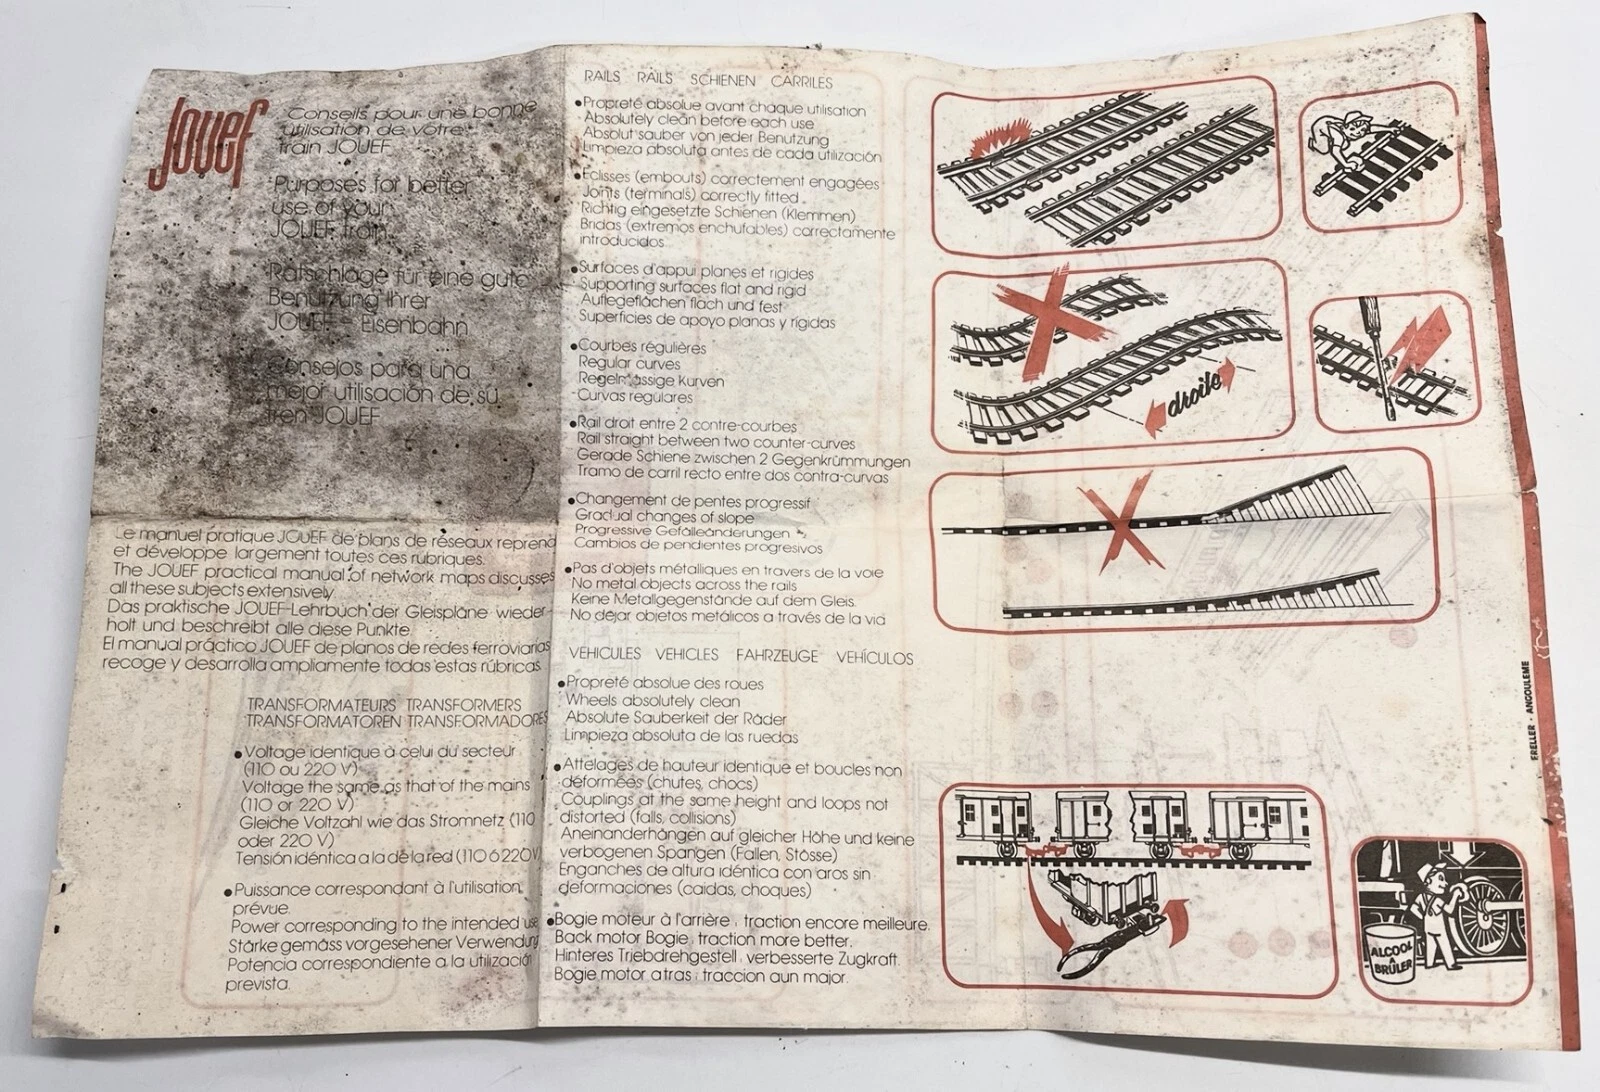 Jouef
Conseils pour une bonne
utilisation de votre
train JOUEF
Purposes for better
use of your
JOUEF train
Ratschläge für eine gute
Benutzung Ihrer
JOUEF - Eisenbahn
Consejos para una
mejor utilisación de su
tren JOUEF
Le manuel pratique JOUEF de plans de réseaux reprend
et développe largement toutes ces rubriques.
The JOUEF practical manual of network maps discusses
all these subjects extensively
Das praktische JOUEF-Lehrbuch der Gleispläne wieder-
holt und beschreibt alle diese Punkte
El manual práctico JOUEF de planos de redes ferroviarias
recoge y desarrolla ampliamente todas estas rúbricas
TRANSFORMATEURS TRANSFORMERS
TRANSFORMATOREN TRANSFORMADORES
•Voltage identique à celui du secteur
(110 ou 220 V)
Voltage the same as that of the mains
(110 or 220 V)
Gleiche Voltzahl wie das Stromnetz (110
oder 220 V)
Tensión idéntica a la de la red (110 ó 220V
•Puissance correspondant à l'utilisation
prévue.
Power corresponding to the intended use
Stärke gemäss vorgesehener Verwendung
Potencia correspondiente a la utilización
prevista.
RAILS RAILS SCHIENEN CARRILES
•Propreté absolue avant chaque utilisation
Absolutely clean before each use
Absolut sauber von jeder Benutzung
Limpieza absoluta antes de cada utilización
•Eclisses (embouts) correctement engagées
Joints (terminals) correctly fitted
Richtig eingesetzte Schienen (Klemmen)
Bridas (extremos enchufables) correctamente
introducidos
•Surfaces d'appui planes et rigides
Supporting surfaces flat and rigid
Auflegeflächen flach und fest
Superficies de apoyo planas y rígidas
•Courbes régulières
Regular curves
Regelmässige Kurven
Curvas regulares
•Rail droit entre 2 contre-courbes
Rail straight between two counter-curves
Gerade Schiene zwischen 2 Gegenkrümmungen
Tramo de carril recto entre dos contra-curvas
•Changement de pentes progressif
Gradual changes of slope
Progressive Gefälleänderungen
Cambios de pendientes progresivos
•Pas d'objets métalliques en travers de la voie
No metal objects across the rails
Keine Metallgegenstände auf dem Gleis.
No dejar objetos metálicos a través de la via
VEHICULES VEHICLES FAHRZEUGE VEHÍCULOS
•Propreté absolue des roues
Wheels absolutely clean
Absolute Sauberkeit der Räder
Limpieza absoluta de las ruedas
•Attelages de hauteur identique et boucles non
déformées (chutes, chocs)
Couplings at the same height and loops not
distorted (falls, collisions)
Aneinanderhängen auf gleicher Höhe und keine
verbogenen Spangen (Fallen, Stösse)
Enganches de altura idéntica con aros sin
deformaciones (caidas, choques)
•Bogie moteur à l'arrière : traction encore meilleure.
Back motor Bogie : traction more better.
Hinteres Triebdrehgestell : verbesserte Zugkraft.
Bogie motor atras : traccion aun major.
droite
ALCOOL
A
BRÛLER
ERELLER - ANGOULEME